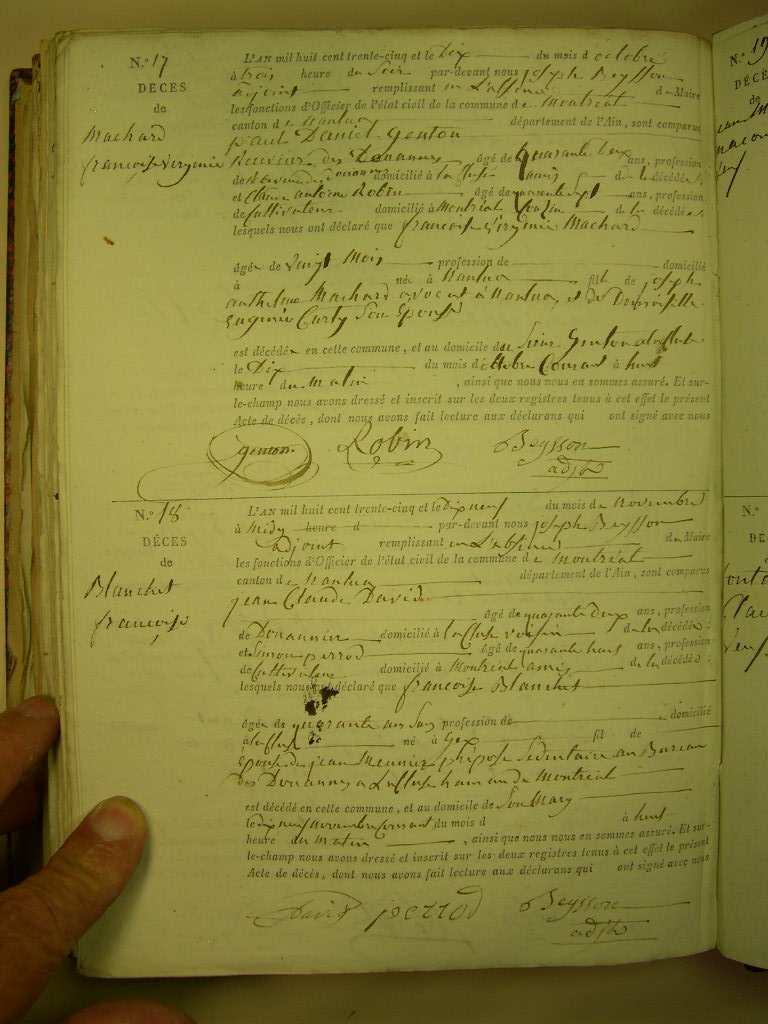 N.º 17
DÉCÈS
de
Machard
françoise virginie
L'AN mil huit cent trente-cinq et le Dix du mois d octobre
à trois heure du Soir par-devant nous joseph Beysson
adjoint remplissant en L'absence du Maire
les fonctions d'Officier de l'état civil de la commune de Montréal
canton de Nantua département de l'Ain, sont comparus
paul Daniel genton
Receveur des Douannes âgé de quarante deux ans, profession
de Receveur des Douannes domicilié à la Cluse amis de la décédée
et Claude antoine Robin âgé de quarante sept ans, profession
de Cultivateur domicilié à Montréal de la décédée
lesquels nous ont déclaré que françoise virginie Machard
âgée de vingt Mois profession de domicilié
à née à Nantua fille de joseph
anthelme Machard avocat à Nantua, et de Demoiselle
Eugenie Curty Son Epouse
est décédée en cette commune, et au domicile du Sieur Genton
le Dix du mois d'octobre Courant à huit
heure du Matin , ainsi que nous nous en sommes assuré. Et sur-
le-champ nous avons dressé et inscrit sur les deux registres tenus à cet effet le présent
Acte de décès, dont nous avons fait lecture aux déclarans qui ont signé avec nous
genton Robin Beysson
adjt
N.º 18
DÉCÈS
de
Blanchet
françoise
L'AN mil huit cent trente-cinq et le dix neuf du mois de Novembre
à Midy heure d par-devant nous joseph Beysson
adjoint remplissant en L'absence du Maire
les fonctions d'Officier de l'état civil de la commune de Montréal
canton de Nantua département de l'Ain, sont comparus
jean Claude David
âgé de quarante deux ans, profession
de Douannier domicilié à la Cluse voisin de la décédée
et Simon perrod âgé de quarante huit ans, profession
de Cultivateur domicilié à Montréal amis de la décédée
lesquels nous ont déclaré que françoise Blanchet
âgée de quarante ans Sans profession de domicilié
à la Cluse née à Gex fill de
Epouse de jean Meunier préposé Sédentaire au Bureau
Des Douannes a La Cluse hameau de Montréal
est décédée en cette commune, et au domicile de Son Mary
le dix neuf novembre Courant du mois d à huit
heure du Matin , ainsi que nous nous en sommes assuré. Et sur-
le-champ nous avons dressé et inscrit sur les deux registres tenus à cet effet le présent
Acte de décès, dont nous avons fait lecture aux déclarans qui ont signé avec nous
David perrod Beysson
adjt
N.º 19
N.º